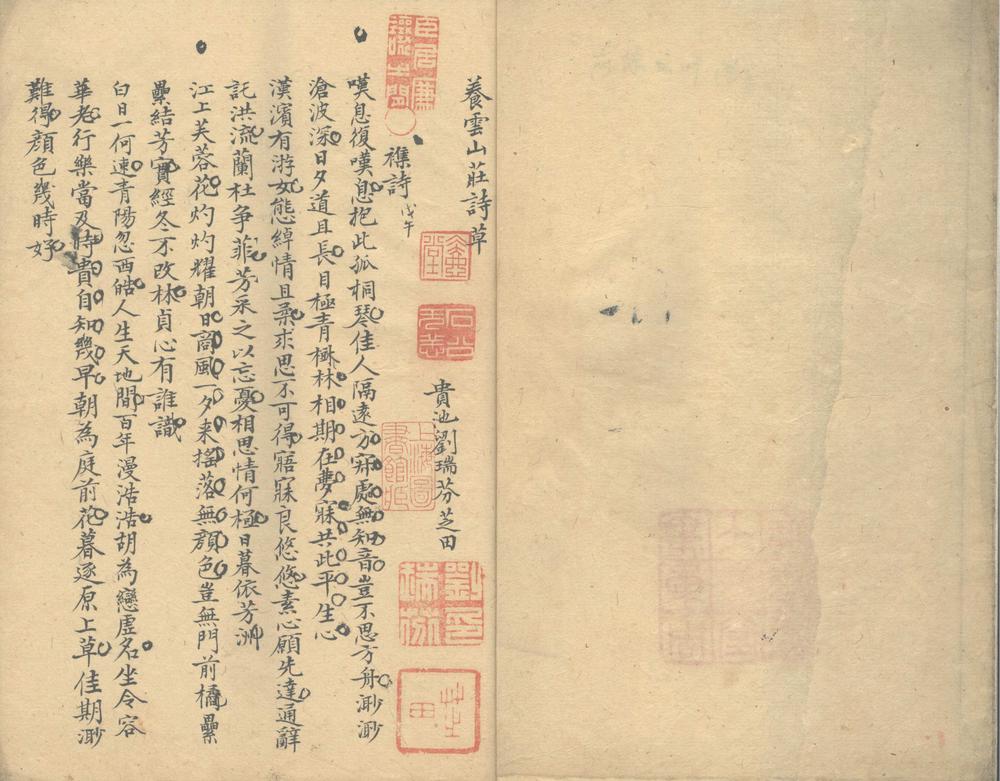 養雲山莊詩草
貴池劉瑞芬芝田
襍詩戊午
嘆息復嘆息抱此孤桐琴佳人隔遠方穽處無知音豈不思方舟渺渺
滄波深日夕道且長目極青楓林相期在夢寐共此平生心
漢濱有游女態綽情且柔求思不可得寤寐良悠悠素心願先達通辭
託洪流蘭杜爭菲芳采之以忘憂相思情何極日暮依芳洲
江上芙蓉花灼灼耀朝日商風一夕来搖落無顔色豈無門前橘纍
纍結芳實經冬不改林貞心有誰識
白日一何速青陽忽西皓人生天地間百年漫浩浩胡為戀虛名坐令容
華老行樂當及時貴自知幾早朝為庭前花暮逐原上草佳期渺
難得顔色幾時好
上海圖書館藏
劉瑞芬印
芝田